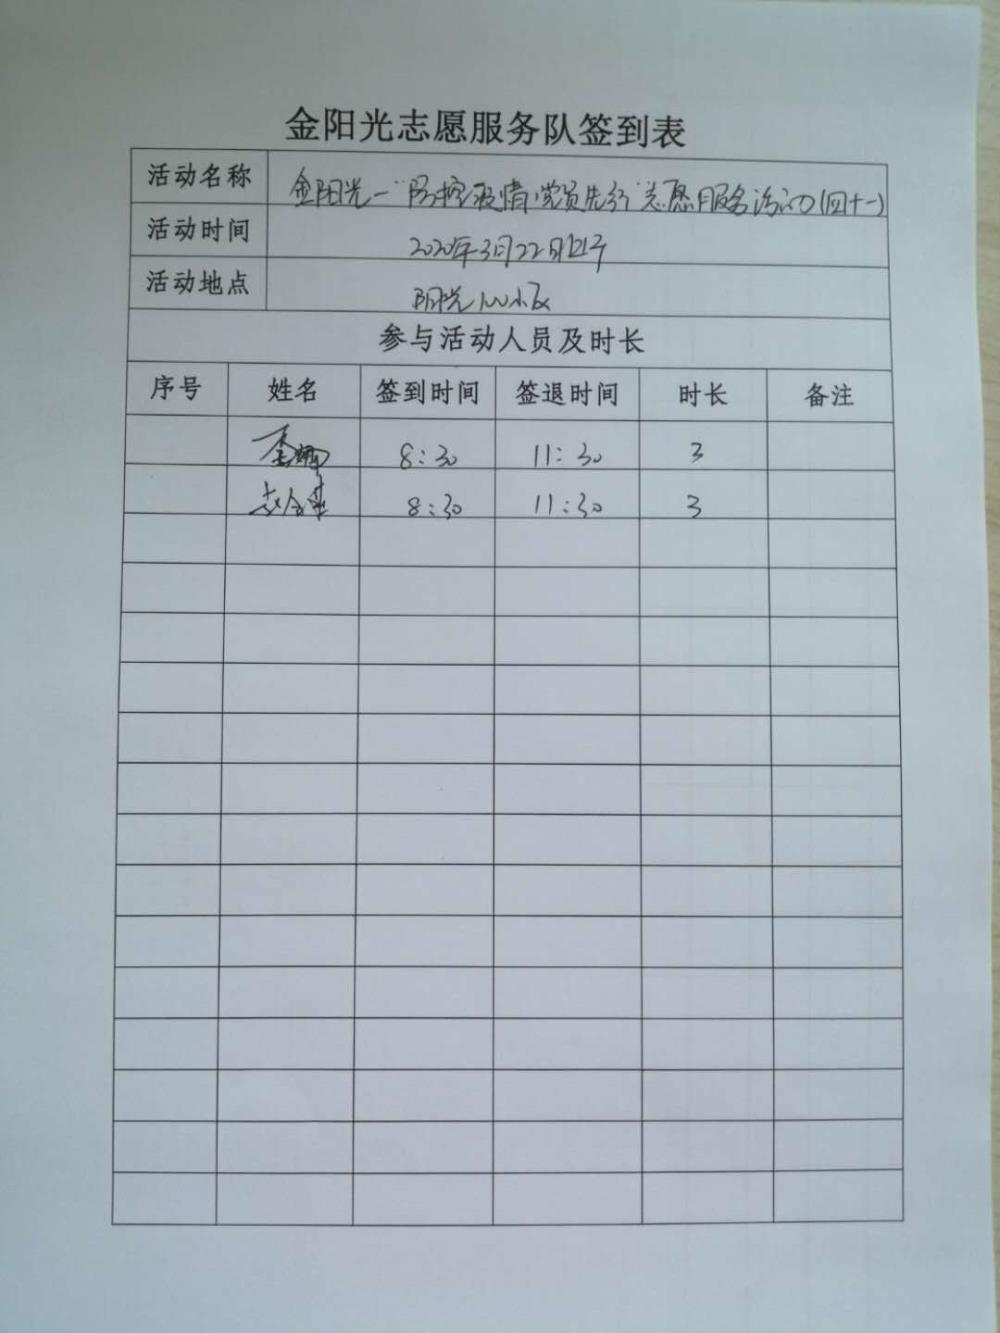 金阳光志愿服务队签到表
活动名称 金阳光一"防控疫情,党员先行"志愿服务活动(四十一)
活动时间 2020年3月22日上午
活动地点 阳光100小区
参与活动人员及时长
序号 姓名 签到时间 签退时间 时长 备注
李娜 8:30 11:30 3
8:30 11:30 3